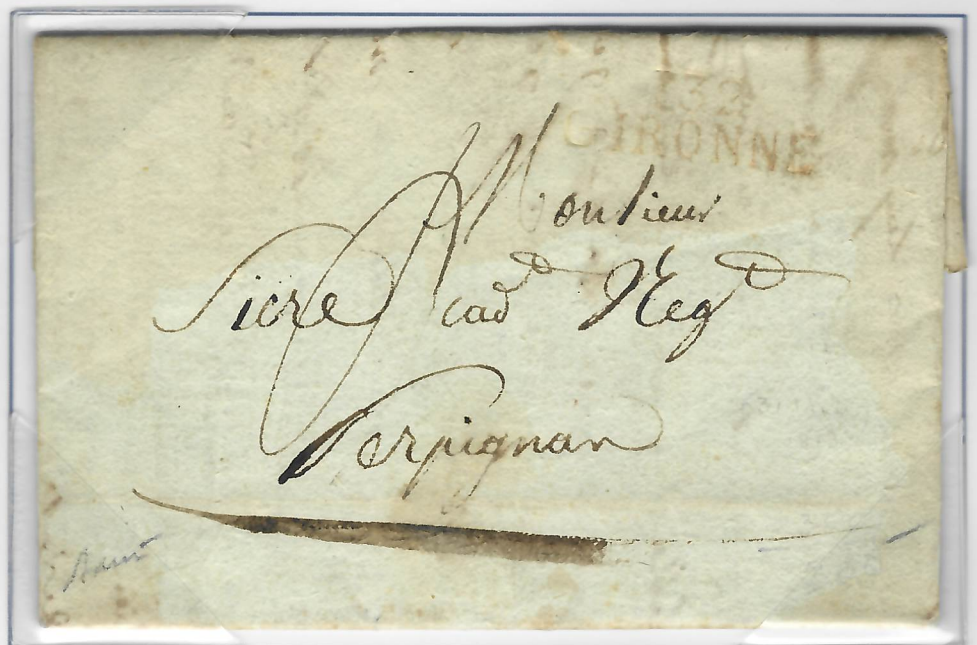 132
GIRONNE
Monsieur
Sicre cad^t Neg^t
Perpignan